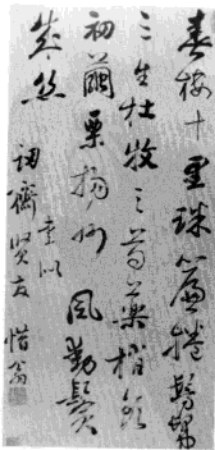 春十里珠簾捲髣髴
三生杜牧之芍藥梢頭
初繭栗揚州風動鬢
成絲
書似
賢友 惜翁